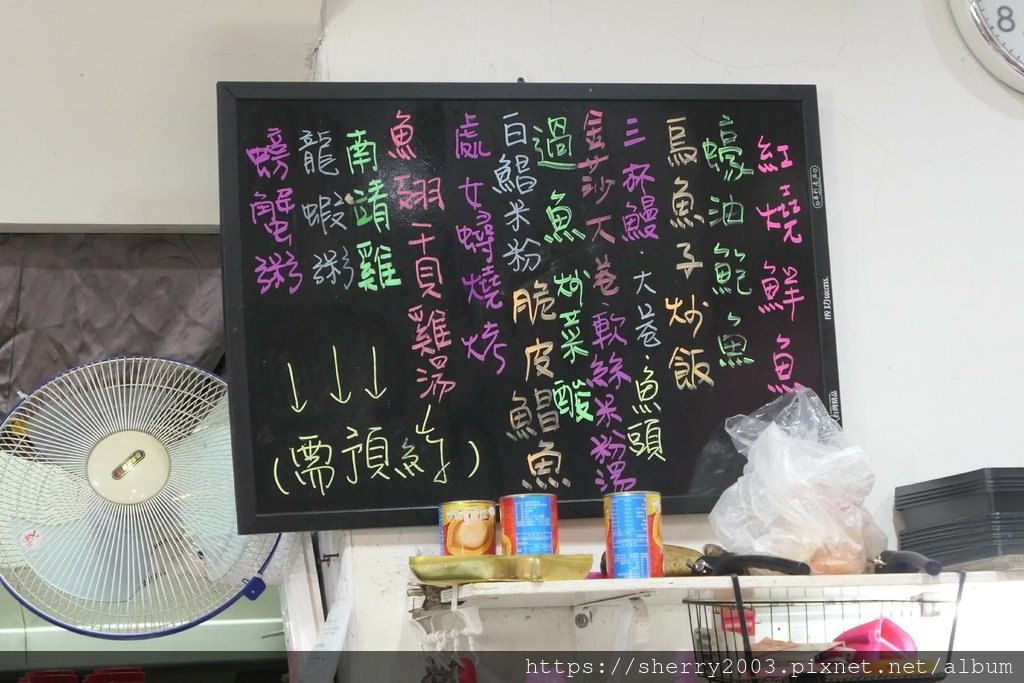 紅燒鮮魚
蠔油鮑魚
烏魚子炒飯
三杯鰻.大卷.魚頭
金莎大卷
軟絲米粉湯
過魚炒菜酸
白鯧米粉
脆皮鯧魚
處女蟳燒烤
魚翅干貝雞湯
南靖雞
龍蝦粥
螃蟹粥
(需預訂)
8
https://sherry2003.pixnet.net/album